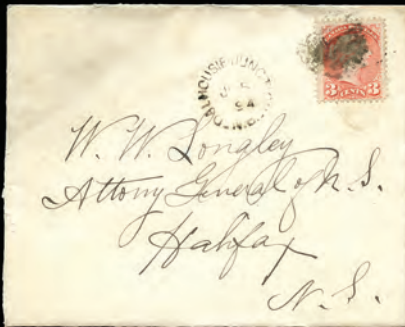 DALHOUSIE JUNCTION
94
N.B.
3 CENTS 3
W. W. Longley
Attony General of N. S.
Halifax
N. S.